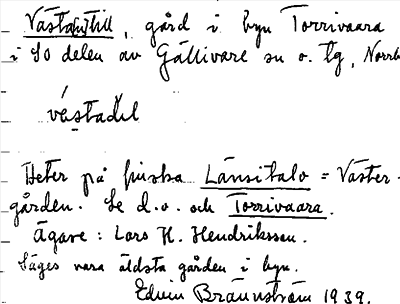 Västantill, gård i byn Torrivaara
i SO delen av Gällivare sn o. tg, Norrb
Heter på finska Länsitalo = Väster-
gården. Se d.o. och Torrivaara.
Ägare: Lars H. Hendriksson.
Säges vara äldsta gården i byn.
Edvin Brännström 1939.